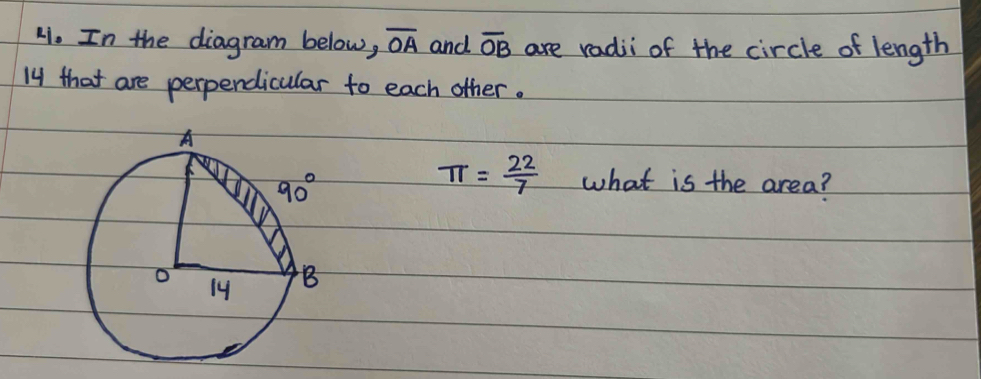 4. In the diagram below, O̅A̅ and O̅B̅ are radii of the circle of length
14 that are perpendicular to each other.
A
90°
π = 22/7 what is the area?
O
14
B